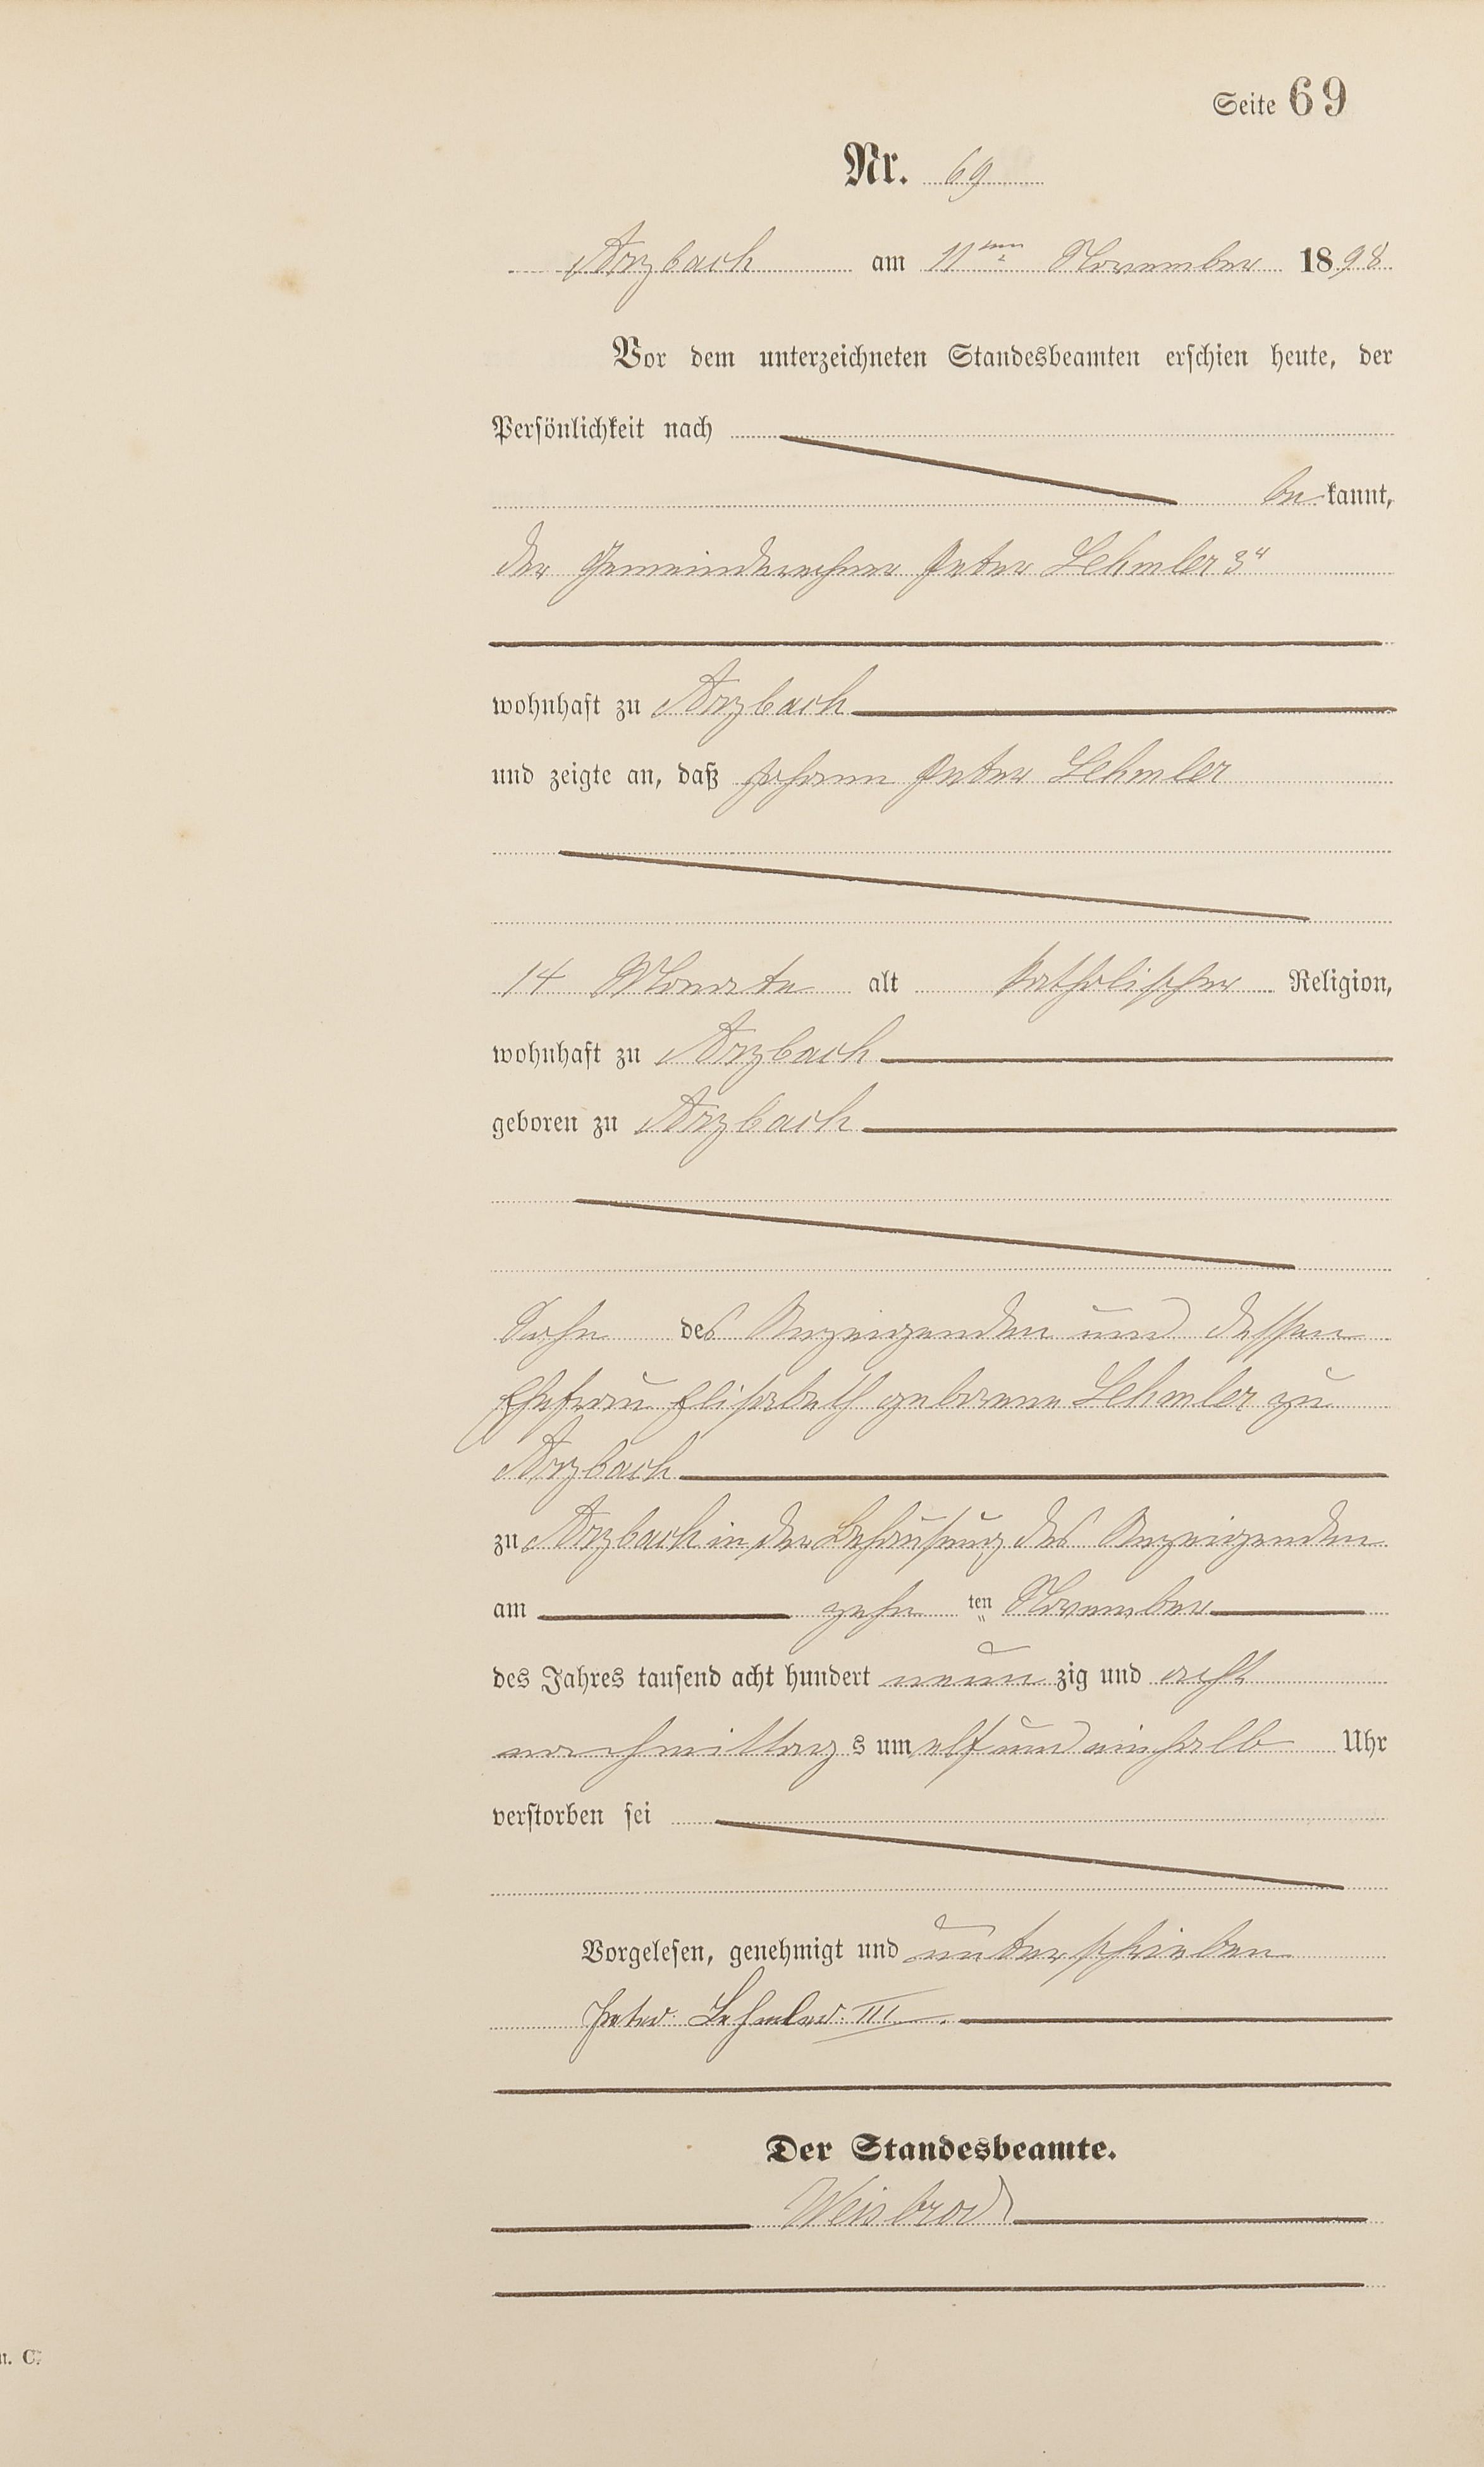 Seite 69
Nr. 69
Arzbach am 11ten November 1898
Vor dem unterzeichneten Standesbeamten erschien heute, der
Persönlichkeit nach
bekannt,
der Gemeinderechner Peter Lehmler 3"
wohnhaft zu Arzbach
und zeigte an, daß Johann Peter Lehmler
14 Monate alt katholischer Religion,
wohnhaft zu Arzbach
geboren zu Arzbach
Sohn des Anzeigenden und dessen
Ehefrau Elisabeth geborene Lehmler zu
Arzbach
zu Arzbach in der Behausung des Anzeigenden
am zehn ten November
des Jahres tausend acht hundert neun zig und acht
nachmittag s um elf und einhalb Uhr
verstorben sei
Vorgelesen, genehmigt und unterschrieben
Peter Lehmler III.
Der Standesbeamte.
Weisbrod
u. C.